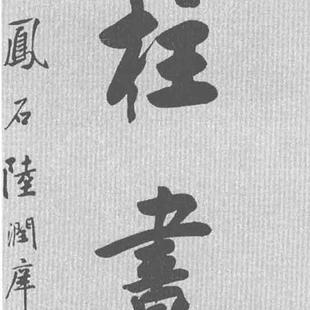 柱書
鳳石陸潤庠